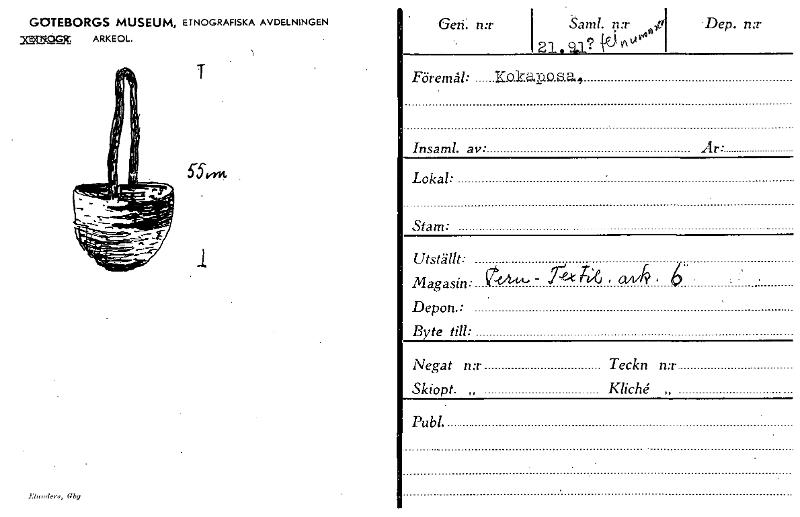 GÖTEBORGS MUSEUM, ETNOGRAFISKA AVDELNINGEN
XETNOGR. ARKEOL.
55 cm
Elanders, Gbg
Gen. n:r
Saml. n:r
21.91? fel nummer
Dep. n:r
Föremål: Kokaposa,
Insaml. av: År:
Lokal:
Stam:
Utställt:
Magasin: Peru - Textil. ark. 6
Depon.:
Byte till:
Negat n:r Teckn n:r
Skiopt. „ Kliché „
Publ.